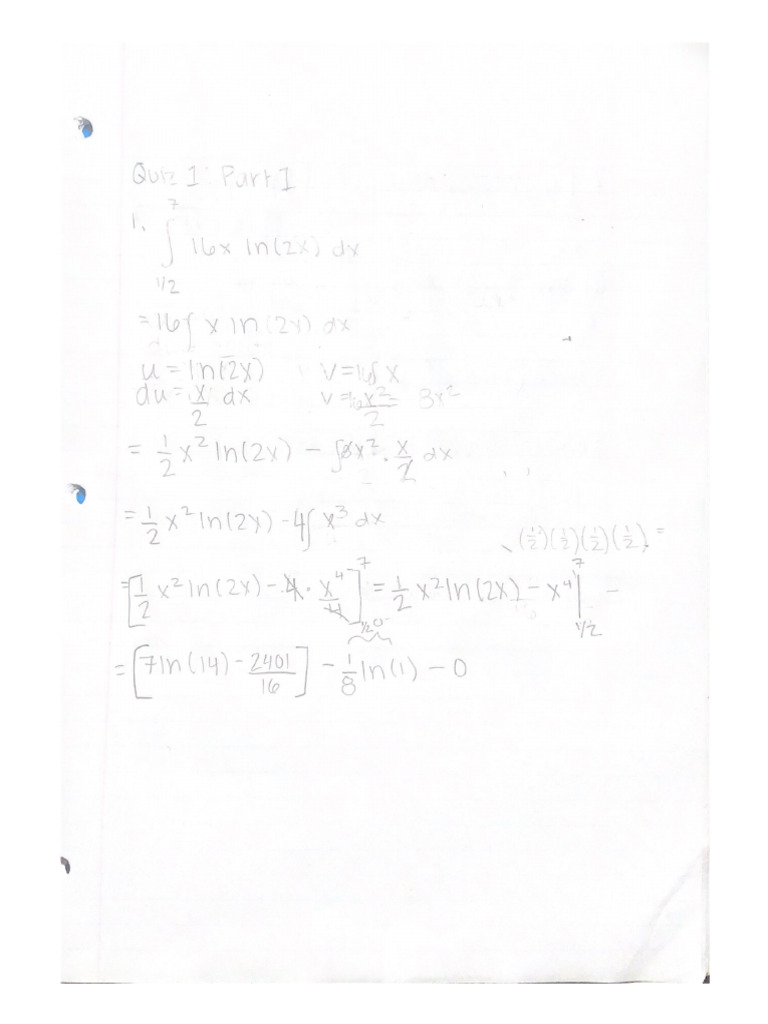 Quiz 1: Part 1
7
1. ∫ 16x ln(2x) dx
1/2
= 16∫ x ln(2x) dx
u = ln(2x) v = 16∫ x
du = x/2 dx v = 16x²/2 = 8x²
= 1/2 x² ln(2x) - ∫8x² · x/2 dx
= 1/2 x² ln(2x) - 4∫ x³ dx
(1/2)(1/2)(1/2)(1/2) =
= [1/2 x² ln(2x) - 4 · x⁴/4]⁷ 1/2 = 1/2 x² ln(2x) - x⁴ |⁷ 1/2 -
= [7 ln(14) - 2401/16] - 1/8 ln(1) - 0